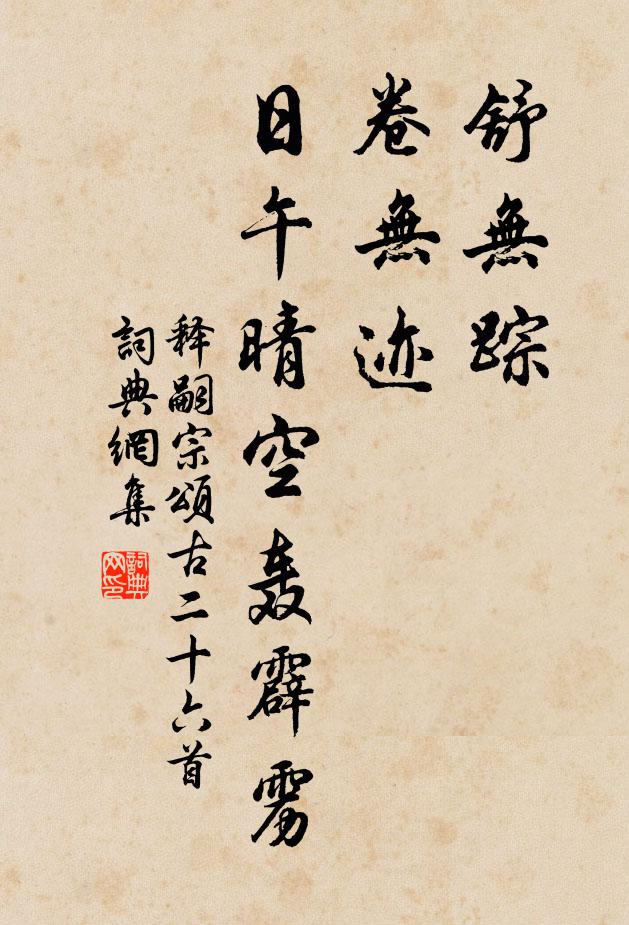 舒無踪
卷無迹
日午晴空轰霹雳
释嗣宗頌古二十六首
詞典網集
詞典网印